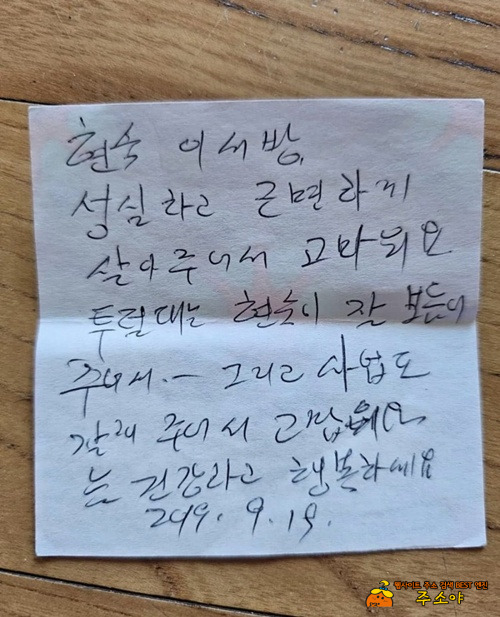 현숙 이서방,
성실하고 근면하게
살아주어서 고마워요
투덜대는 현숙이 잘 보듬어
주어서.— 그리고 사업도
잘해 주어서 고맙워요
늘 건강하고 행복하세요
2019. 9. 19.
웹사이트 주소 검색 BEST 엔진
주소야